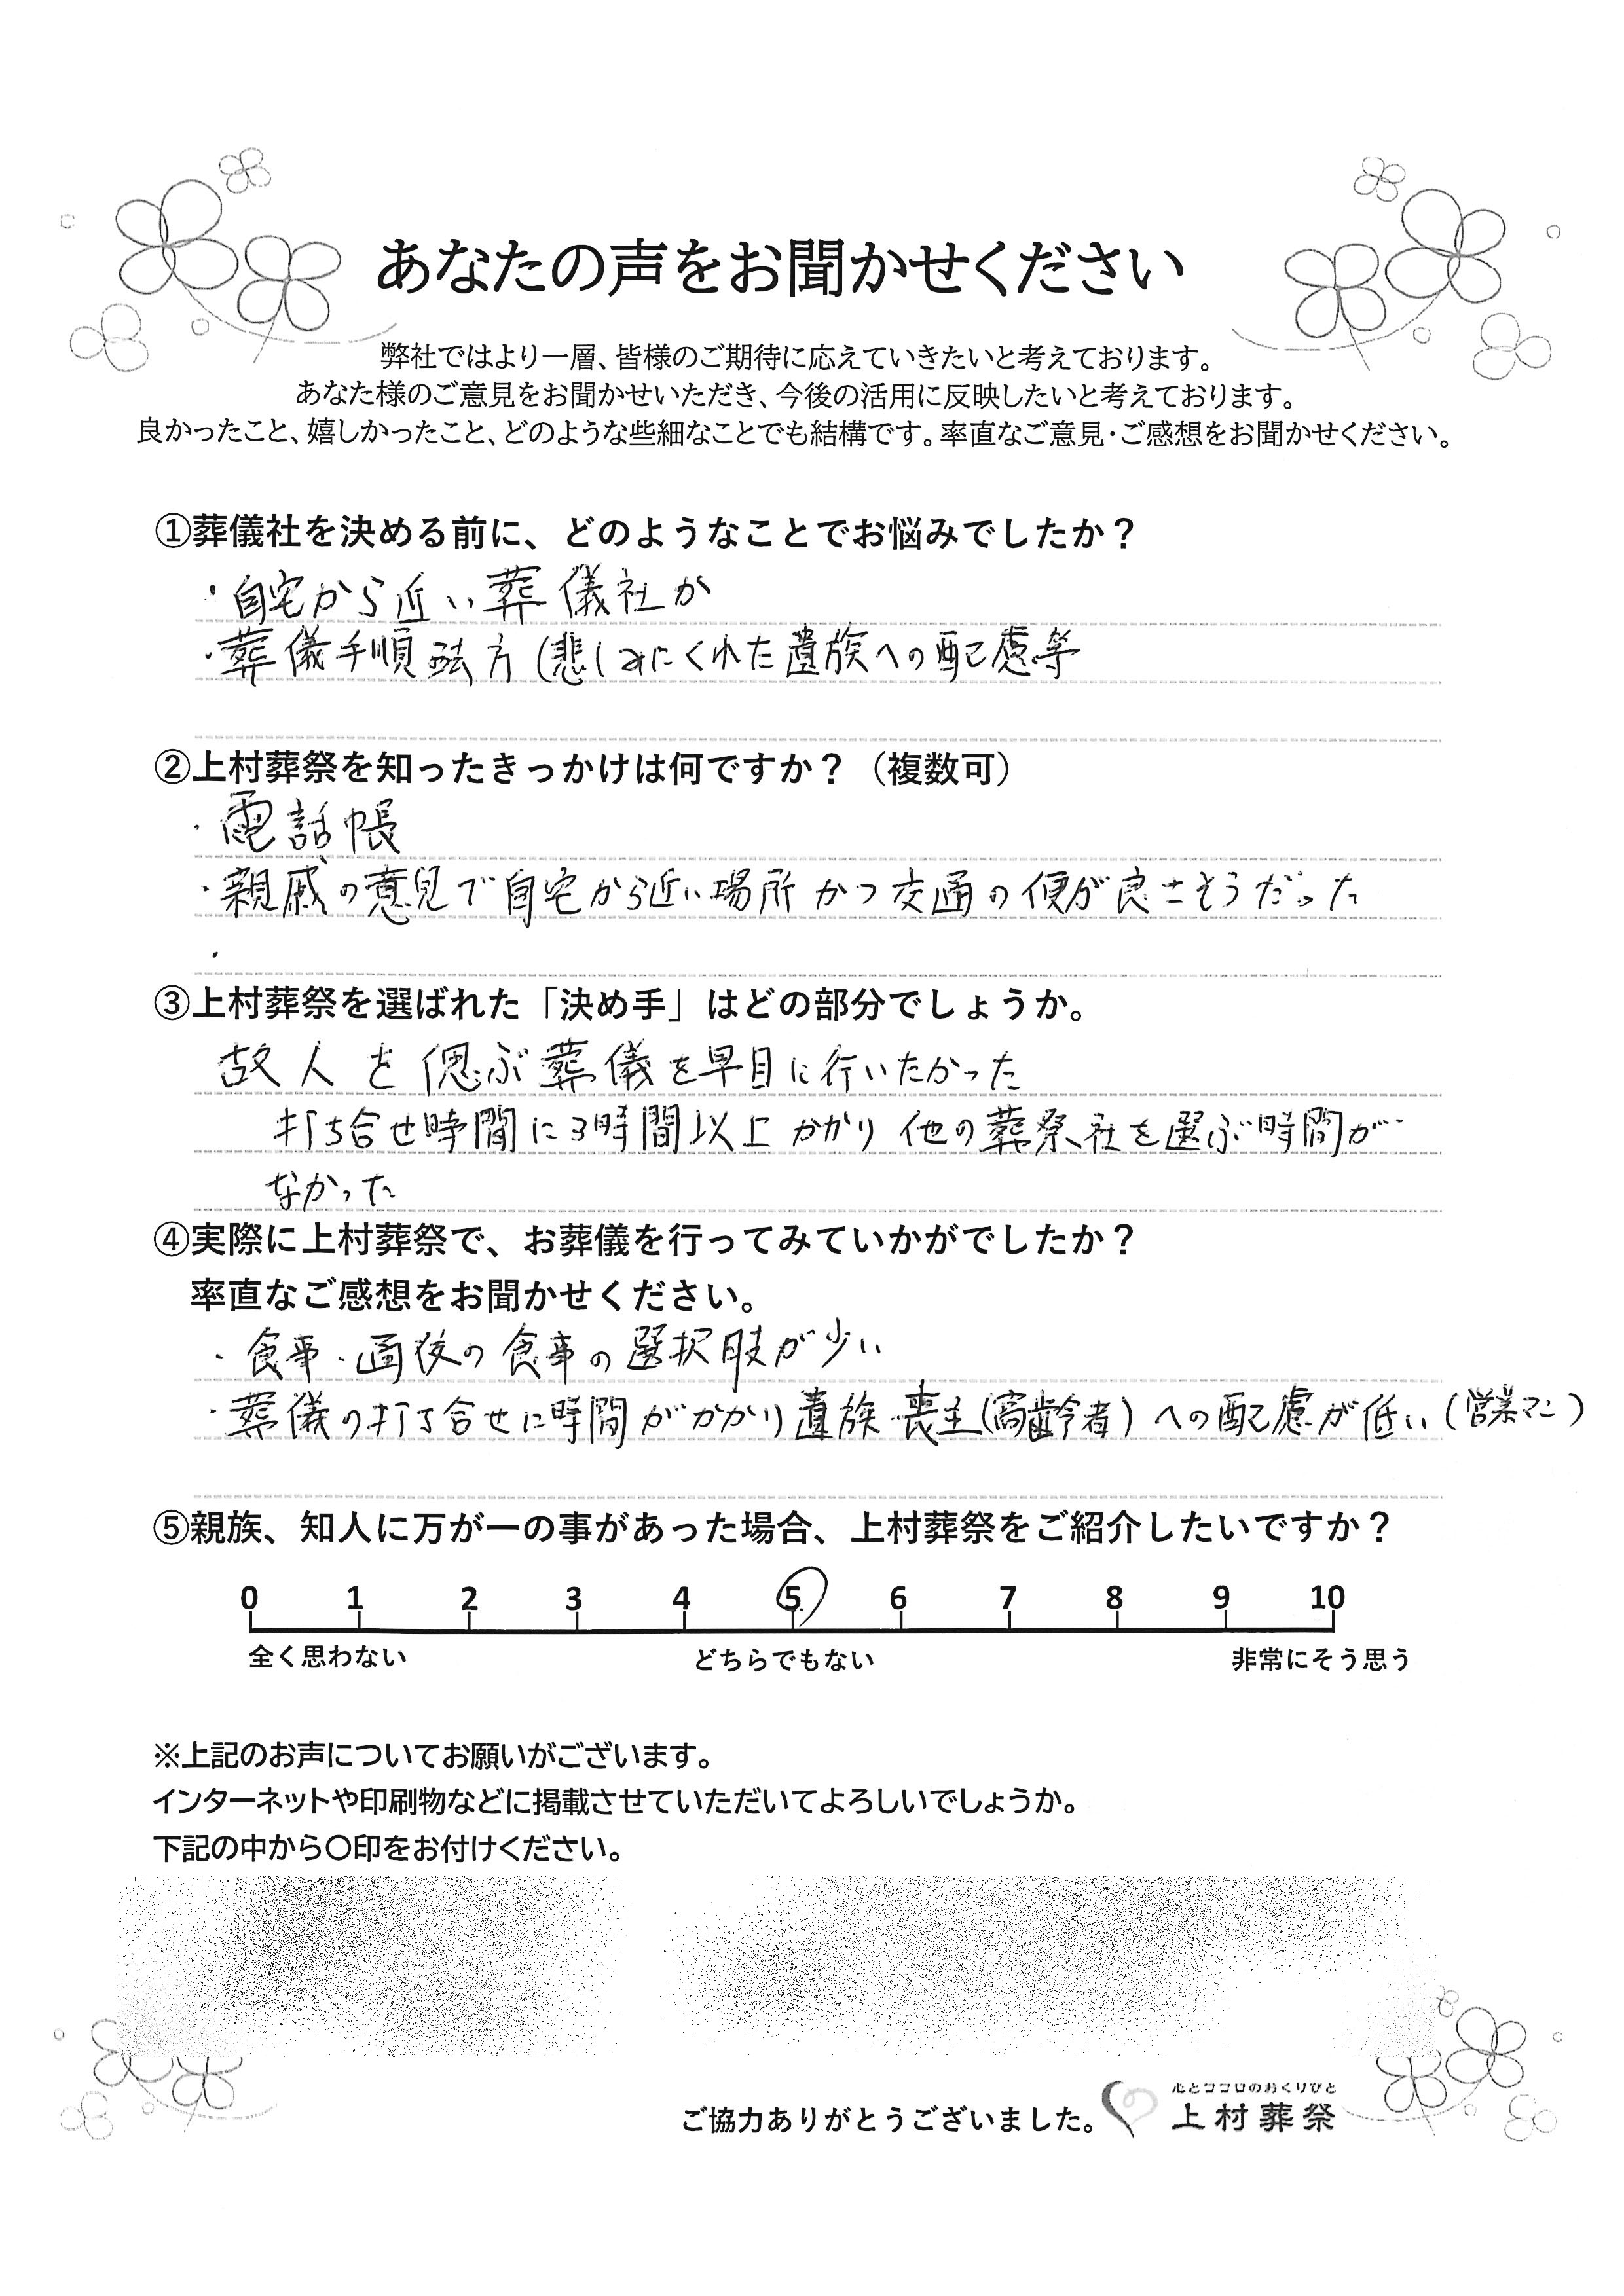 あなたの声をお聞かせください
弊社ではより一層、皆様のご期待に応えていきたいと考えております。
あなた様のご意見をお聞かせいただき、今後の活用に反映したいと考えております。
良かったこと、嬉しかったこと、どのような些細なことでも結構です。率直なご意見・ご感想をお聞かせください。
①葬儀社を決める前に、どのようなことでお悩みでしたか？
・自宅から近い葬儀社か
・葬儀手順 方(悲しみにくれた遺族への配慮等
②上村葬祭を知ったきっかけは何ですか？（複数可）
・電話帳
・親戚の意見で自宅から近い場所かつ交通の便が良さそうだった
・
③上村葬祭を選ばれた「決め手」はどの部分でしょうか。
故人を偲ぶ葬儀を早目に行いたかった
打ち合せ時間に3時間以上かかり他の葬祭社を選ぶ時間が
なかった
④実際に上村葬祭で、お葬儀を行ってみていかがでしたか？
率直なご感想をお聞かせください。
・食事・ 後の食事の選択肢が少い
・葬儀の打合せに時間がかかり遺族・喪主(高齢者)への配慮が低い(営業マン)
⑤親族、知人に万が一の事があった場合、上村葬祭をご紹介したいですか？
0 1 2 3 4 5 6 7 8 9 10
全く思わない どちらでもない 非常にそう思う
※上記のお声についてお願いがございます。
インターネットや印刷物などに掲載させていただいてよろしいでしょうか。
下記の中から〇印をお付けください。
心とココロのおくりびと
ご協力ありがとうございました。 上村葬祭